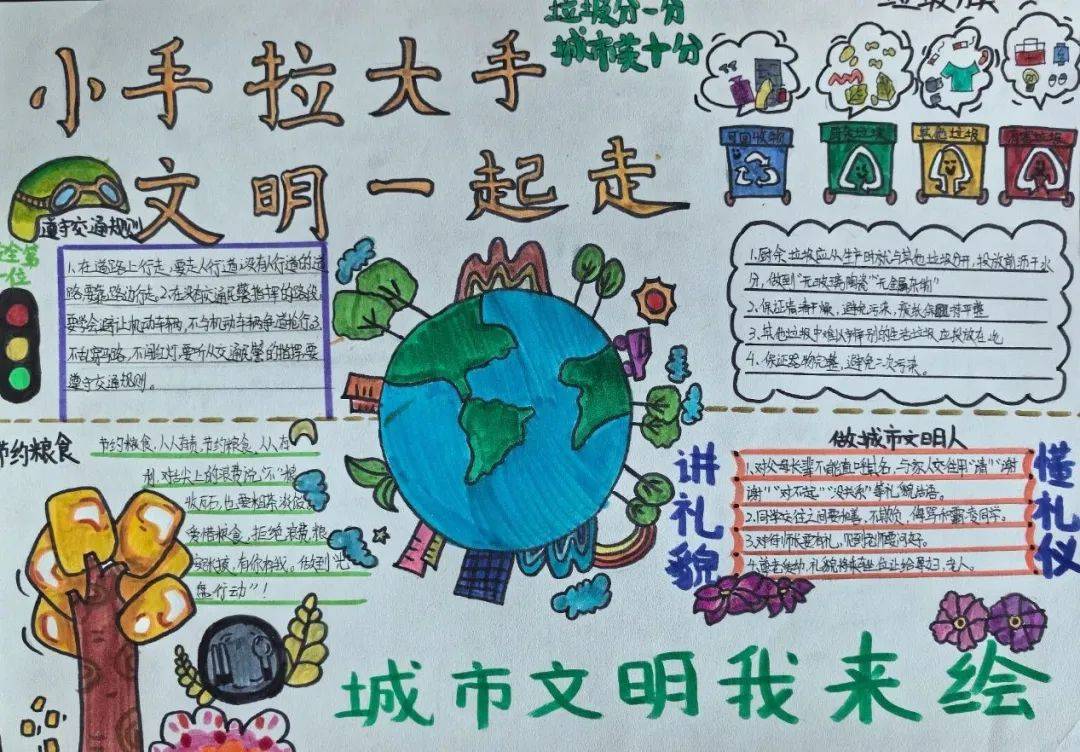 垃圾分一分
城市美十分
垃圾分类
小手拉大手
文明一起走
可回收物
厨余垃圾
其他垃圾
有害垃圾
遵守交通规则
安全第
一位
1.在道路上行走,要走人行道;没有人行道的道
路要靠路边行走。2.在没有交通民警指挥的路段,
要学会避让机动车辆,不与机动车辆争道抢行3.
不乱穿马路,不闯红灯,要听从交通民警的指挥,要
遵守交通规则。
1.厨余垃圾应从生产时就与其他垃圾分开,投放前沥干水
分,做到"无玻璃陶瓷""无金属杂物"
2.保证清洁干燥,避免污染,
3.其他垃圾中难以辨别的生活垃圾应投放在此
4.保证器物完整,避免二次污染。
节约粮食
节约粮食,人人有责,节约粮食,人人有
利。对舌尖上的浪费说"不"粮
收万石,也要粗茶淡饭
爱惜粮食,拒绝浪费粮
有你有我。做到"光
盘行动"!
讲礼貌
做城市文明人
1.对父母长辈不能直呼其名,与家人交往用"请""谢
谢""对不起""没关系"等礼貌用语。
2.同学交往之间要和善,不欺负,侮辱和霸凌同学。
3.对待师长要有礼,见到老师要问好。
4.
懂礼仪
城市文明我来绘